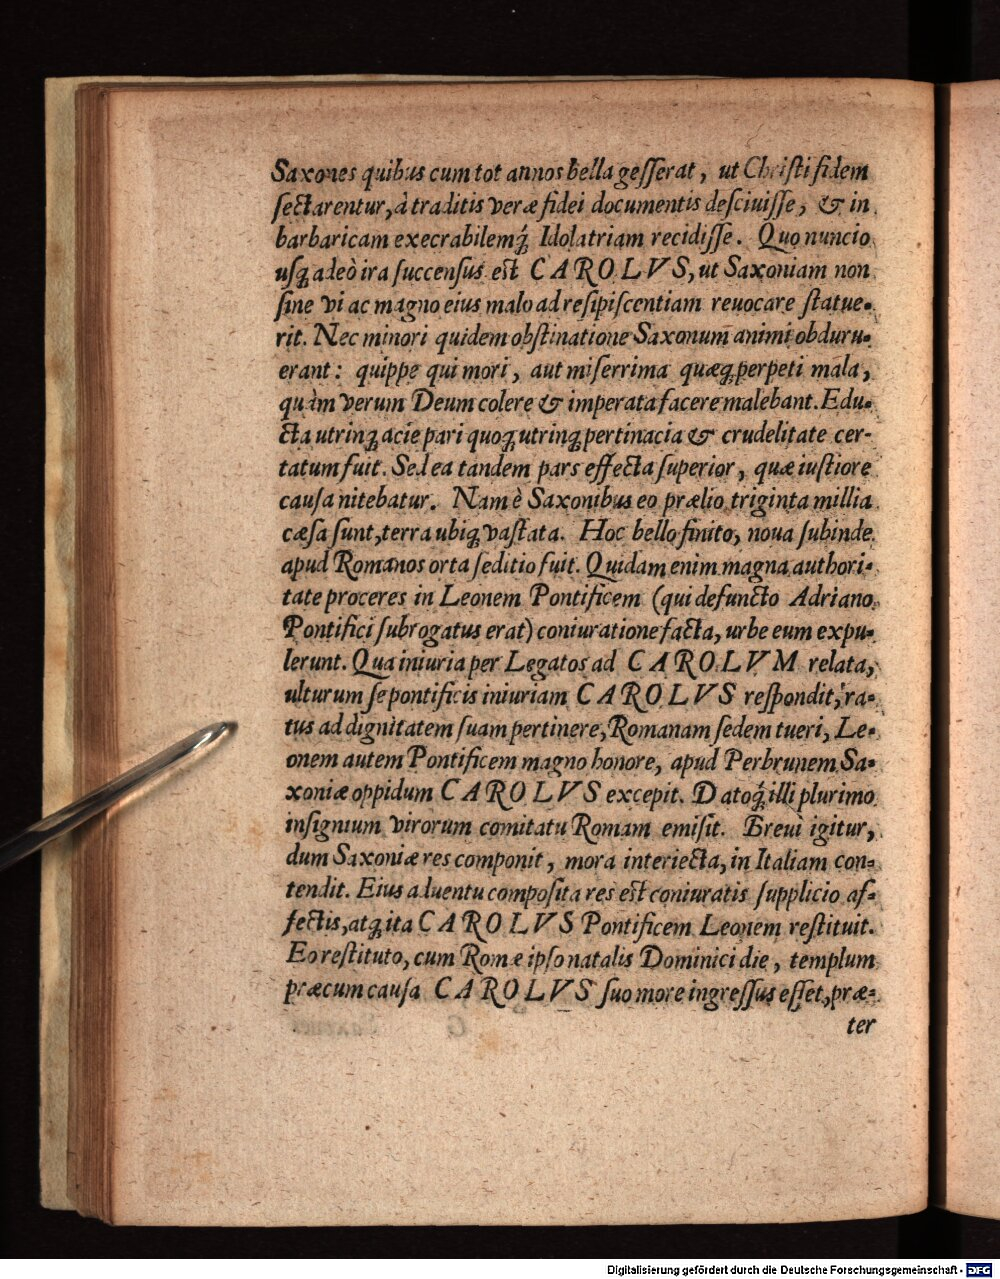 Saxones quibus cum tot annos bella geſſerat, ut Chriſti fidem
ſectarentur, à traditis veræ fidei documentis deſciuiſſe, & in
barbaricam execrabilemq́; Idolatriam recidiſſe. Quo nuncio
uſq; adeò ira ſuccenſus eſt CAROLVS, ut Saxoniam non
ſine vi ac magno eius malo ad reſipiſcentiam reuocare ſtatue-
rit. Nec minori quidem obſtinatione Saxonum animi obduru-
erant: quippe qui mori, aut miſerrima quæq; perpeti mala,
quàm verum Deum colere & imperata facere malebant. Edu-
cta utrinq; acie pari quoq; utrinq; pertinacia & crudelitate cer-
tatum fuit. Sed ea tandem pars effecta ſuperior, quæ iuſtiore
cauſa nitebatur. Nam è Saxonibus eo prælio triginta millia
cæſa ſunt, terra ubiq; vaſtata. Hoc bello finito, noua ſubinde
apud Romanos orta ſeditio fuit. Quidam enim magna authori-
tate proceres in Leonem Pontificem (qui defuncto Adriano
Pontifici ſubrogatus erat) coniuratione facta, urbe eum expu-
lerunt. Qua iniuria per Legatos ad CAROLVM relata,
ulturum ſe pontificis iniuriam CAROLVS reſpondit, ra-
tus ad dignitatem ſuam pertinere, Romanam ſedem tueri, Le-
onem autem Pontificem magno honore, apud Perbrunem Sa-
xoniæ oppidum CAROLVS excepit. Datoq́; illi plurimo
inſignium virorum comitatu Romam emiſit. Breui igitur,
dum Saxoniæ res componit, mora interiecta, in Italiam con-
tendit. Eius aduentu compoſita res eſt coniuratis ſupplicio af-
fectis, atq; ita CAROLVS Pontificem Leonem reſtituit.
Eo reſtituto, cum Romæ ipſo natalis Dominici die, templum
præcum cauſa CAROLVS ſuo more ingreſſus eſſet, præ-
ter
Digitalisierung gefördert durch die Deutsche Forschungsgemeinschaft - DFG